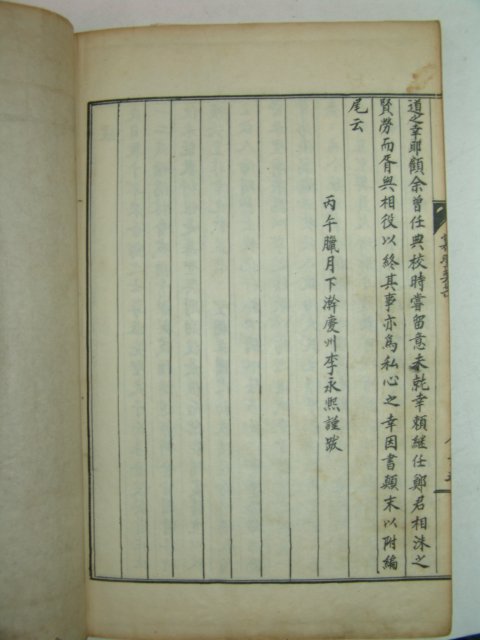 道之幸耶顧余曾任典校時嘗留意未就幸賴继任鄭君相洙之
賢勞而胥與相役以終其事亦爲私心之幸因書顛末以附編
尾云
丙午臘月下澣慶州李永熙謹跋